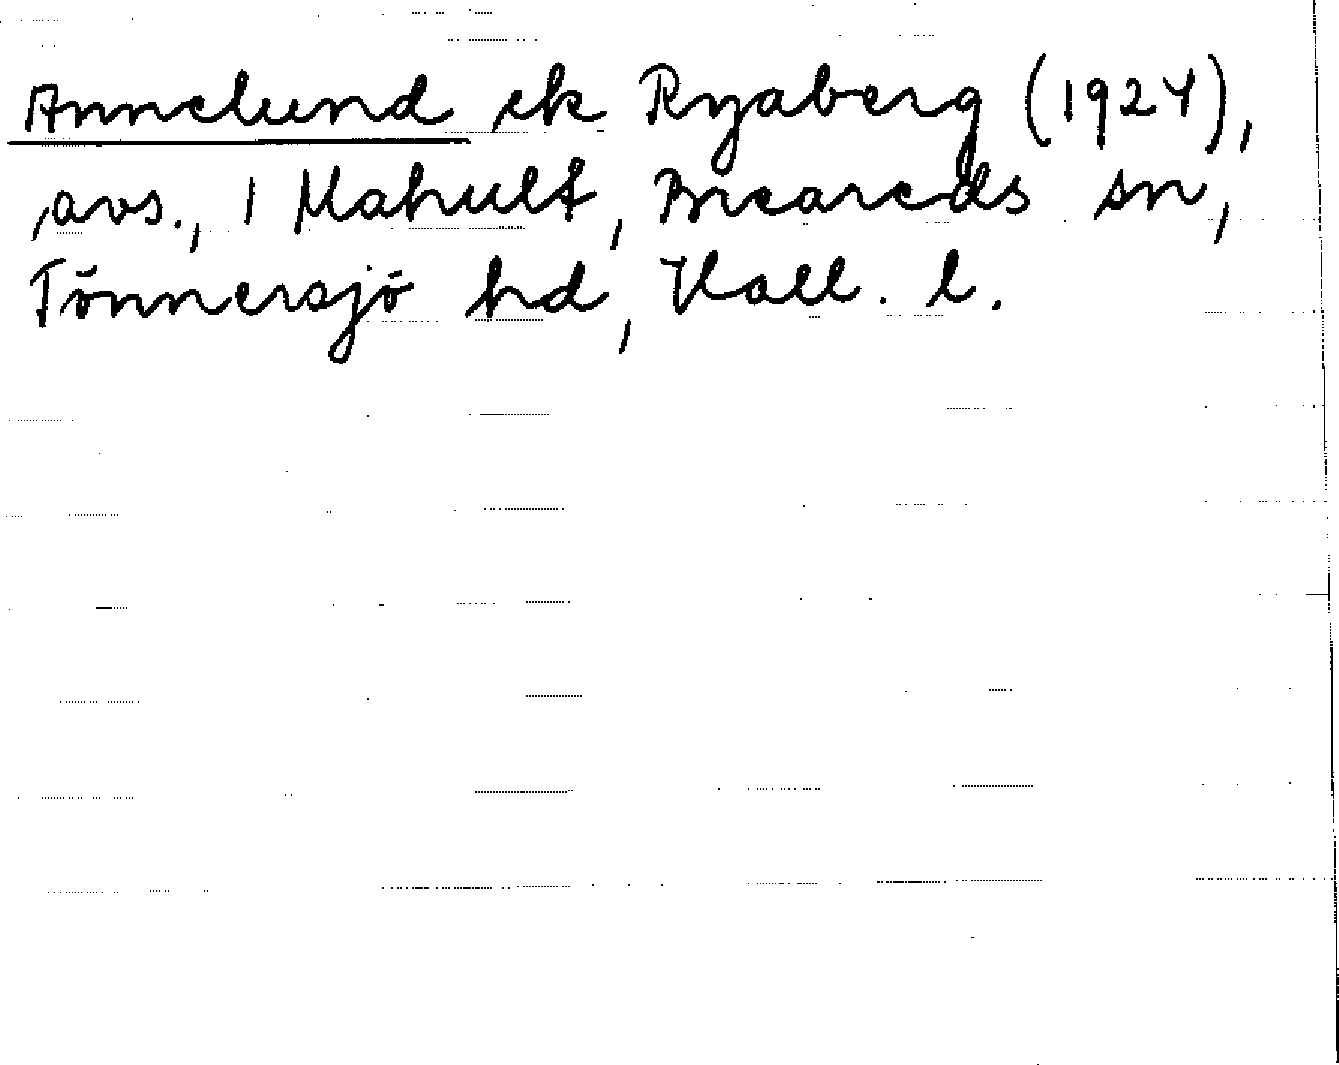 Annelund ek Ryaberg (1924),
avs., 1 Mahult, Breareds sn,
Tönnersjö hd, Hall. l.